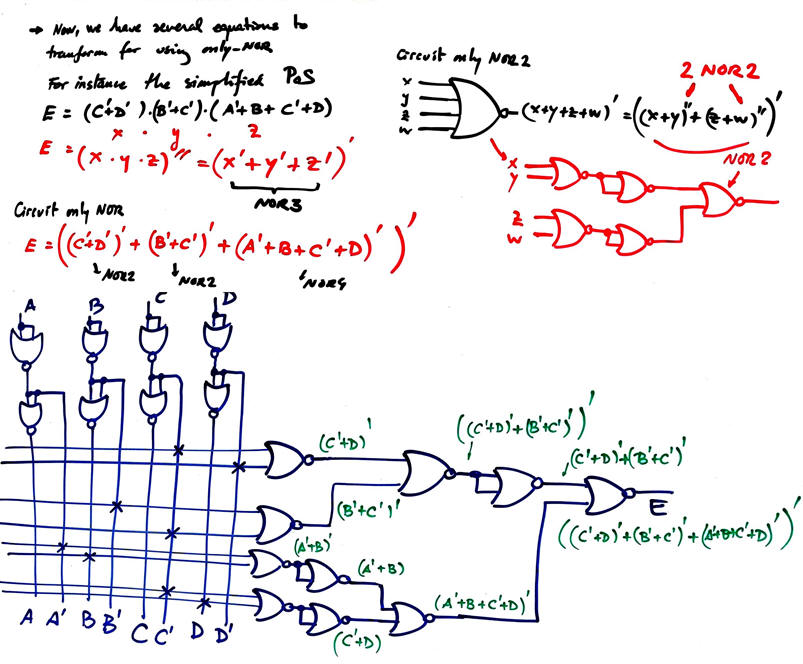 → Now, we have several equations to
tranform for using only-NOR
For instance the simplified PoS
E = (C'+D').(B'+C').(A'+B+C'+D)
x . y . z
E = (x.y.z)'' = (x'+y'+z')'
NOR3
Circuit only NOR
E = ((C'+D')'+(B'+C')'+(A'+B+C'+D)')'
NOR2 NOR2 NOR4
Circuit only NOR2
2 NOR2
x
y
z
w
(x+y+z+w)' = ((x+y)''+(z+w)'')'
NOR2
x
y
z
w
A B C D
(C'+D)'
((C'+D)'+(B'+C')')'
(C'+D)'+(B'+C')'
(B'+C')'
E
((C'+D)'+(B'+C')'+(A'+B+C'+D)')'
(A'+B)'
(A'+B)
(A'+B+C'+D)'
(C'+D)
A A' B B' C C' D D'